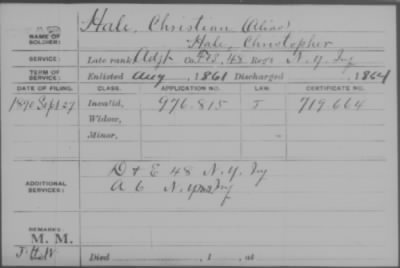 NAME OF SOLDIER: Hale, Christian (Alias)
Hale, Christopher
SERVICE: Late rank, Adjt Co. F&S, 48 Reg't N.Y. Inf
TERM OF SERVICE: Enlisted Aug, 1861 Discharged , 1864
DATE OF FILING. CLASS. APPLICATION NO. LAW. CERTIFICATE NO.
1890 Sept 27 Invalid, 976.815 J 719.664
Widow,
Minor,
ADDITIONAL SERVICES: D + E 48 N.Y. Inf
A 6 Inf
REMARKS:
M. M.
Died , 1 , at